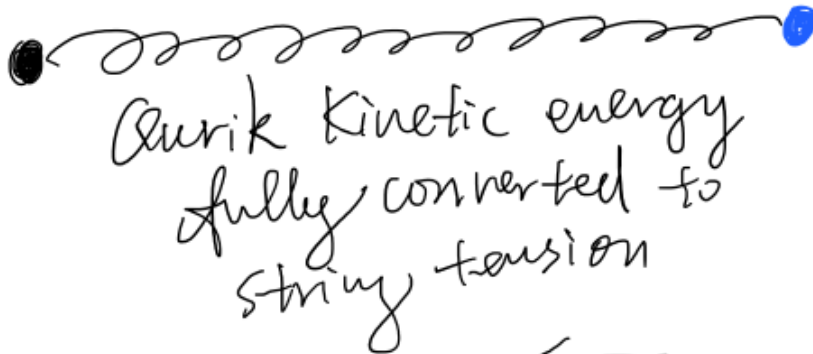 Qurik Kinetic energy
fully converted to
string tension